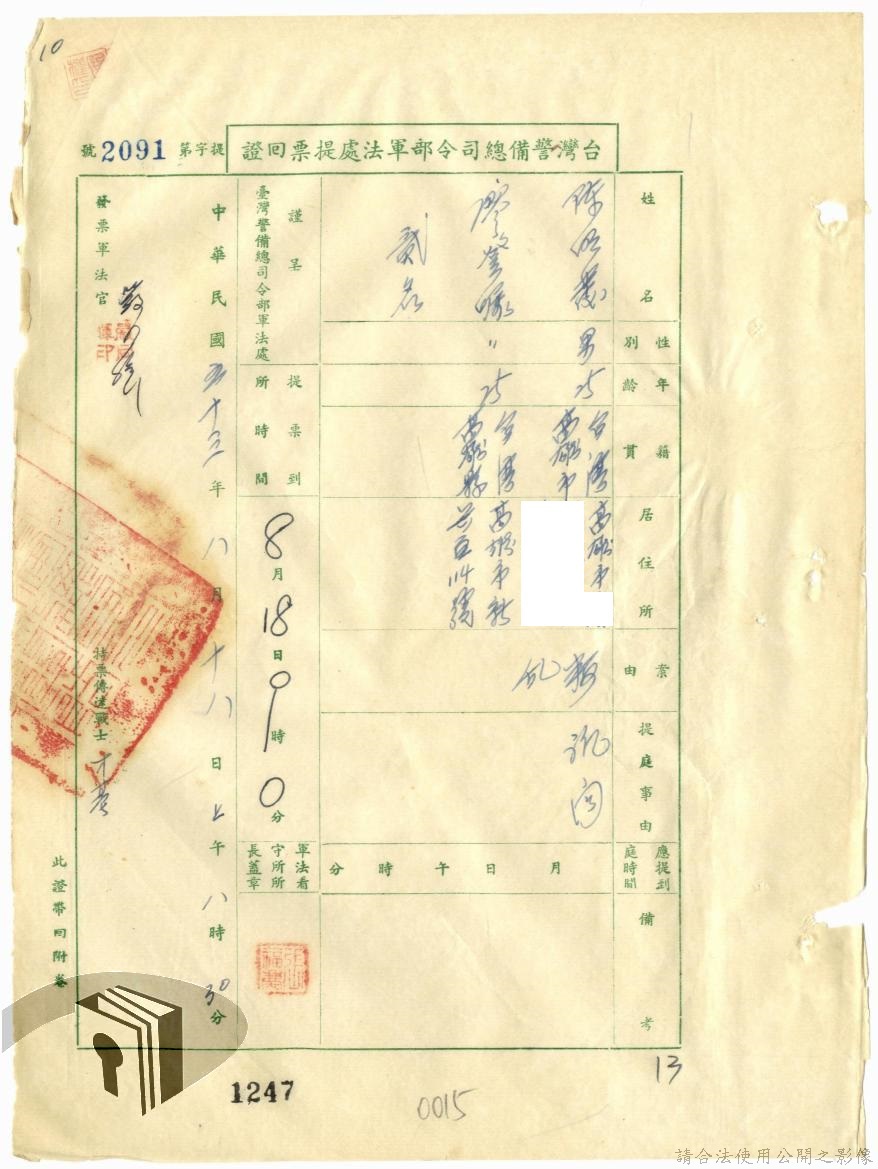 10
台灣警備總司令部軍法處提票回證
提字第2091號
姓名
性別
年齡
籍貫
居住所
案由
提庭事由
應提到庭時間
備考
陳
男
25
台灣高雄市
高雄市
叛亂
訊問
廖
〃
25
台灣高雄縣
高雄市新
號
貳名
月 日 午 時 分
謹呈
臺灣警備總司令部軍法處
提票到所時間
8月18日9時0分
軍法看守所所長蓋章
中華民國五十三年八月十八日上午八時30分
發票軍法官
持票傳達戰士
此證帶回附卷
1247
0015
13
請合法使用公開之影像